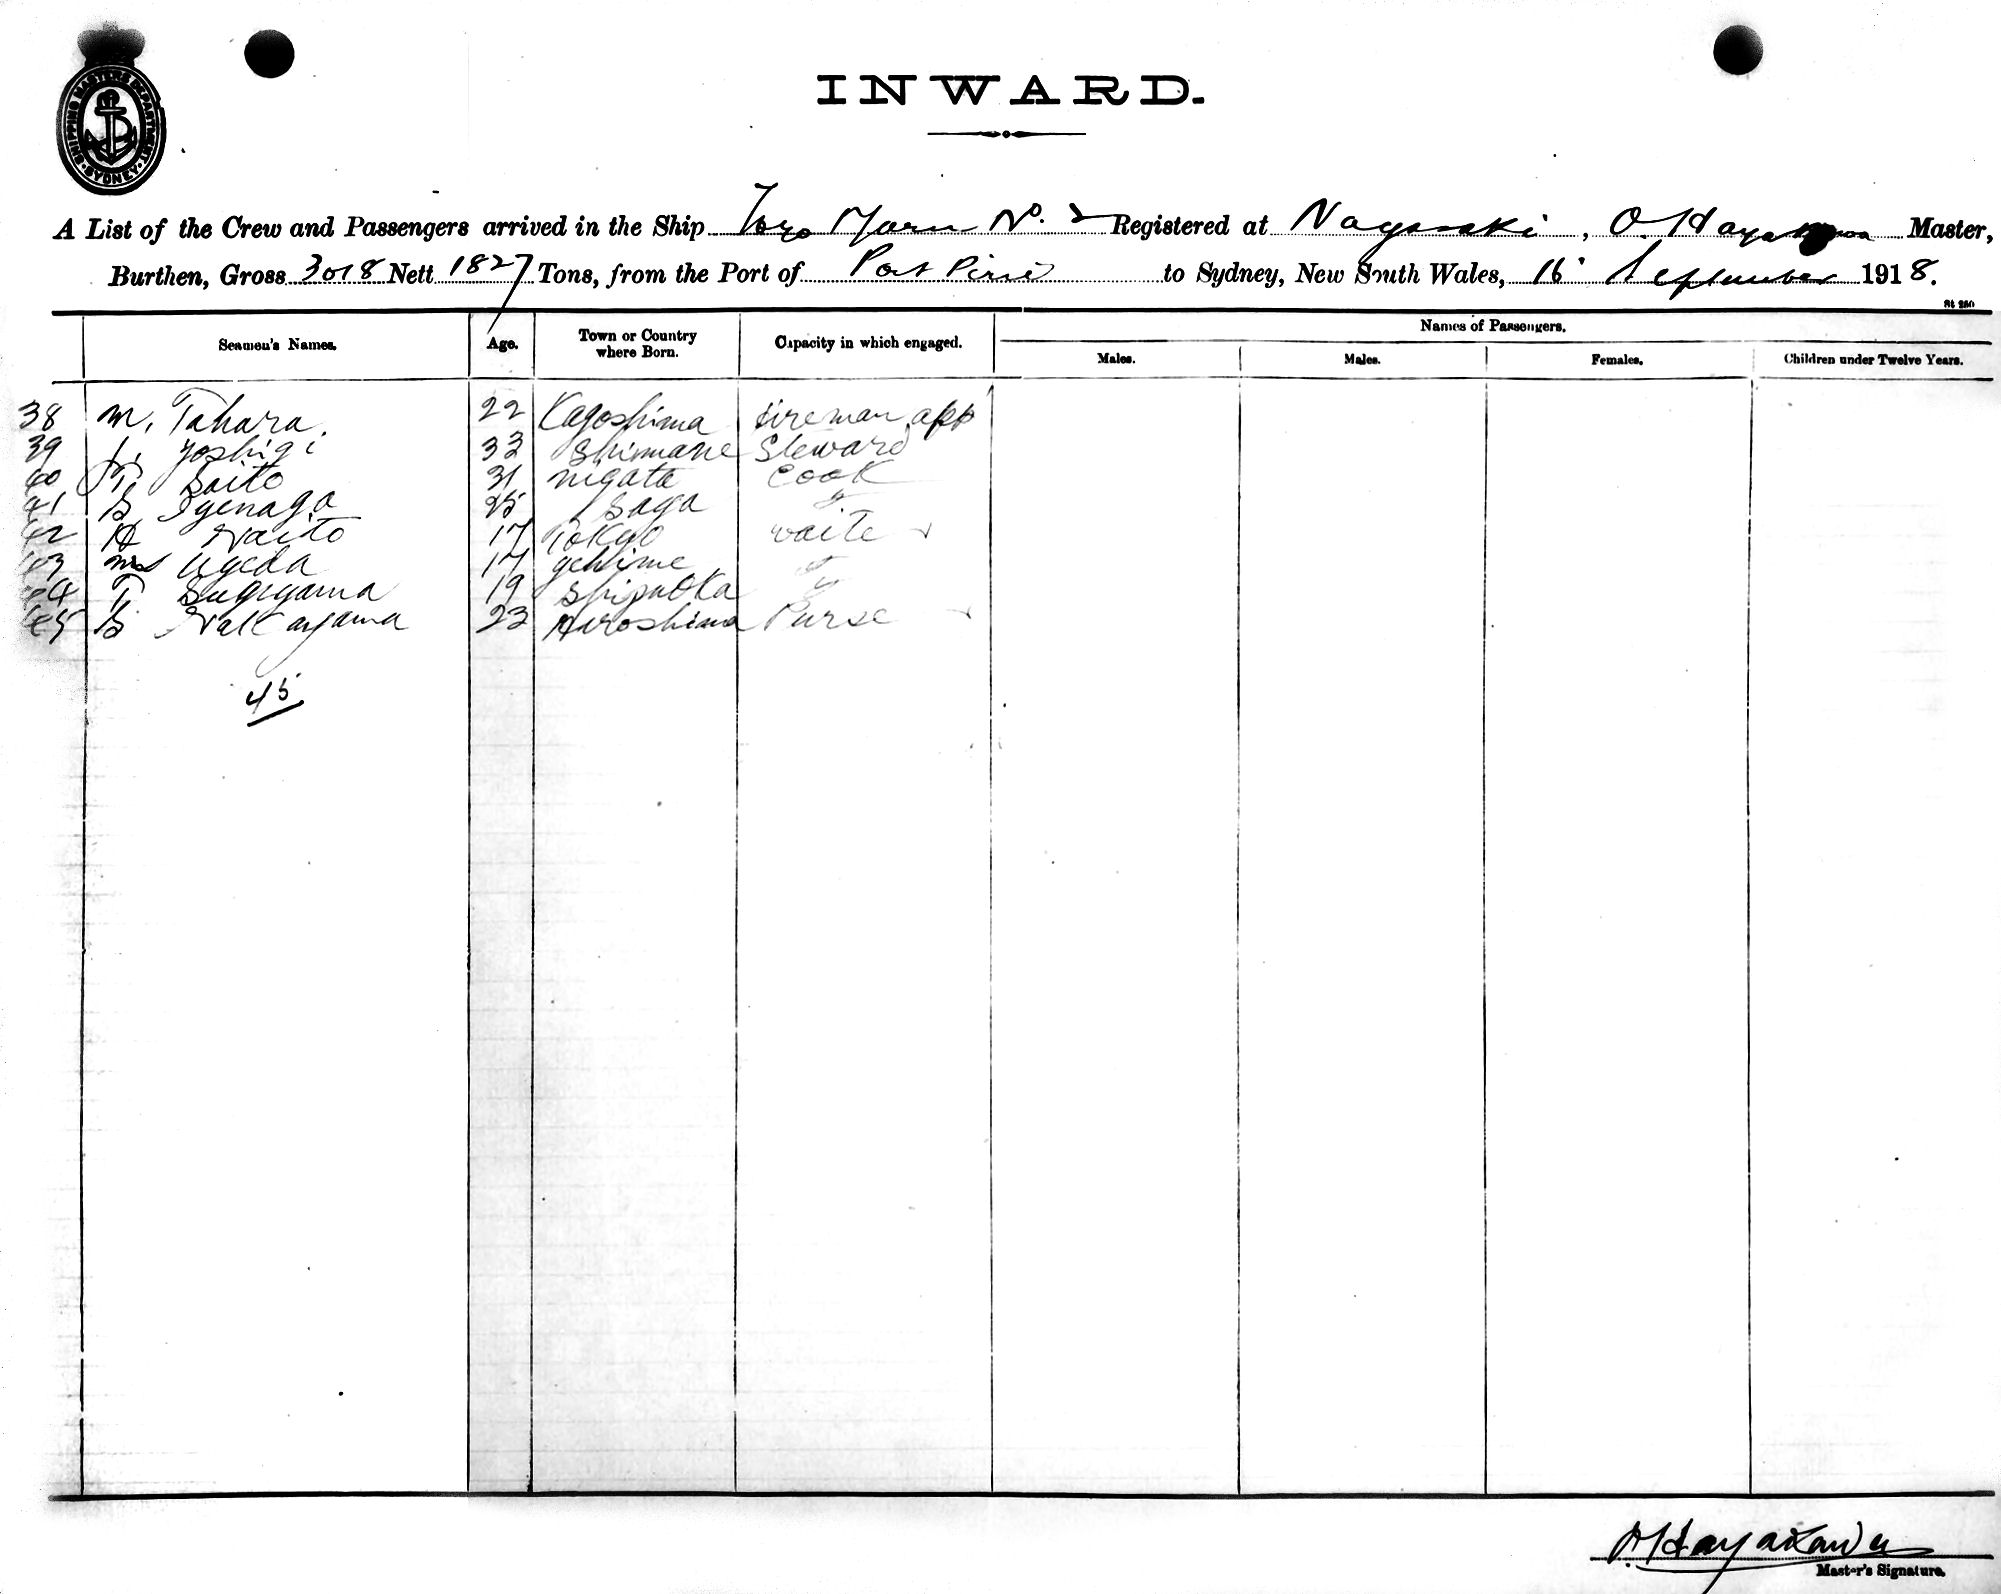 SHIPPING MASTERS DEPARTMENT
SYDNEY
INWARD.
A List of the Crew and Passengers arrived in the Ship Toyo Maru No. 2 Registered at Nagasaki, O. Hayakawa Master,
Burthen, Gross 3018 Nett 1827 Tons, from the Port of Port Pirie to Sydney, New South Wales, 16 September 1918.
St 250
Seamen's Names. Age. Town or Country where Born. Capacity in which engaged. Names of Passengers.
Males. Males. Females. Children under Twelve Years.
38 M. Tahara. 22 Kagoshima fireman app
39 Yoshigi 33 Shimane Steward
40 T. Saito 31 nigata Cook
41 S Iyenaga 25 Saga "
42 H Naito 17 Tokyo waite
43 Ugeda 17 yehime "
44 T. Sugiyama 19 Shizuoka "
45 S Nakayama 23 Hiroshima Purse
45
O. Hayakawa
Master's Signature.